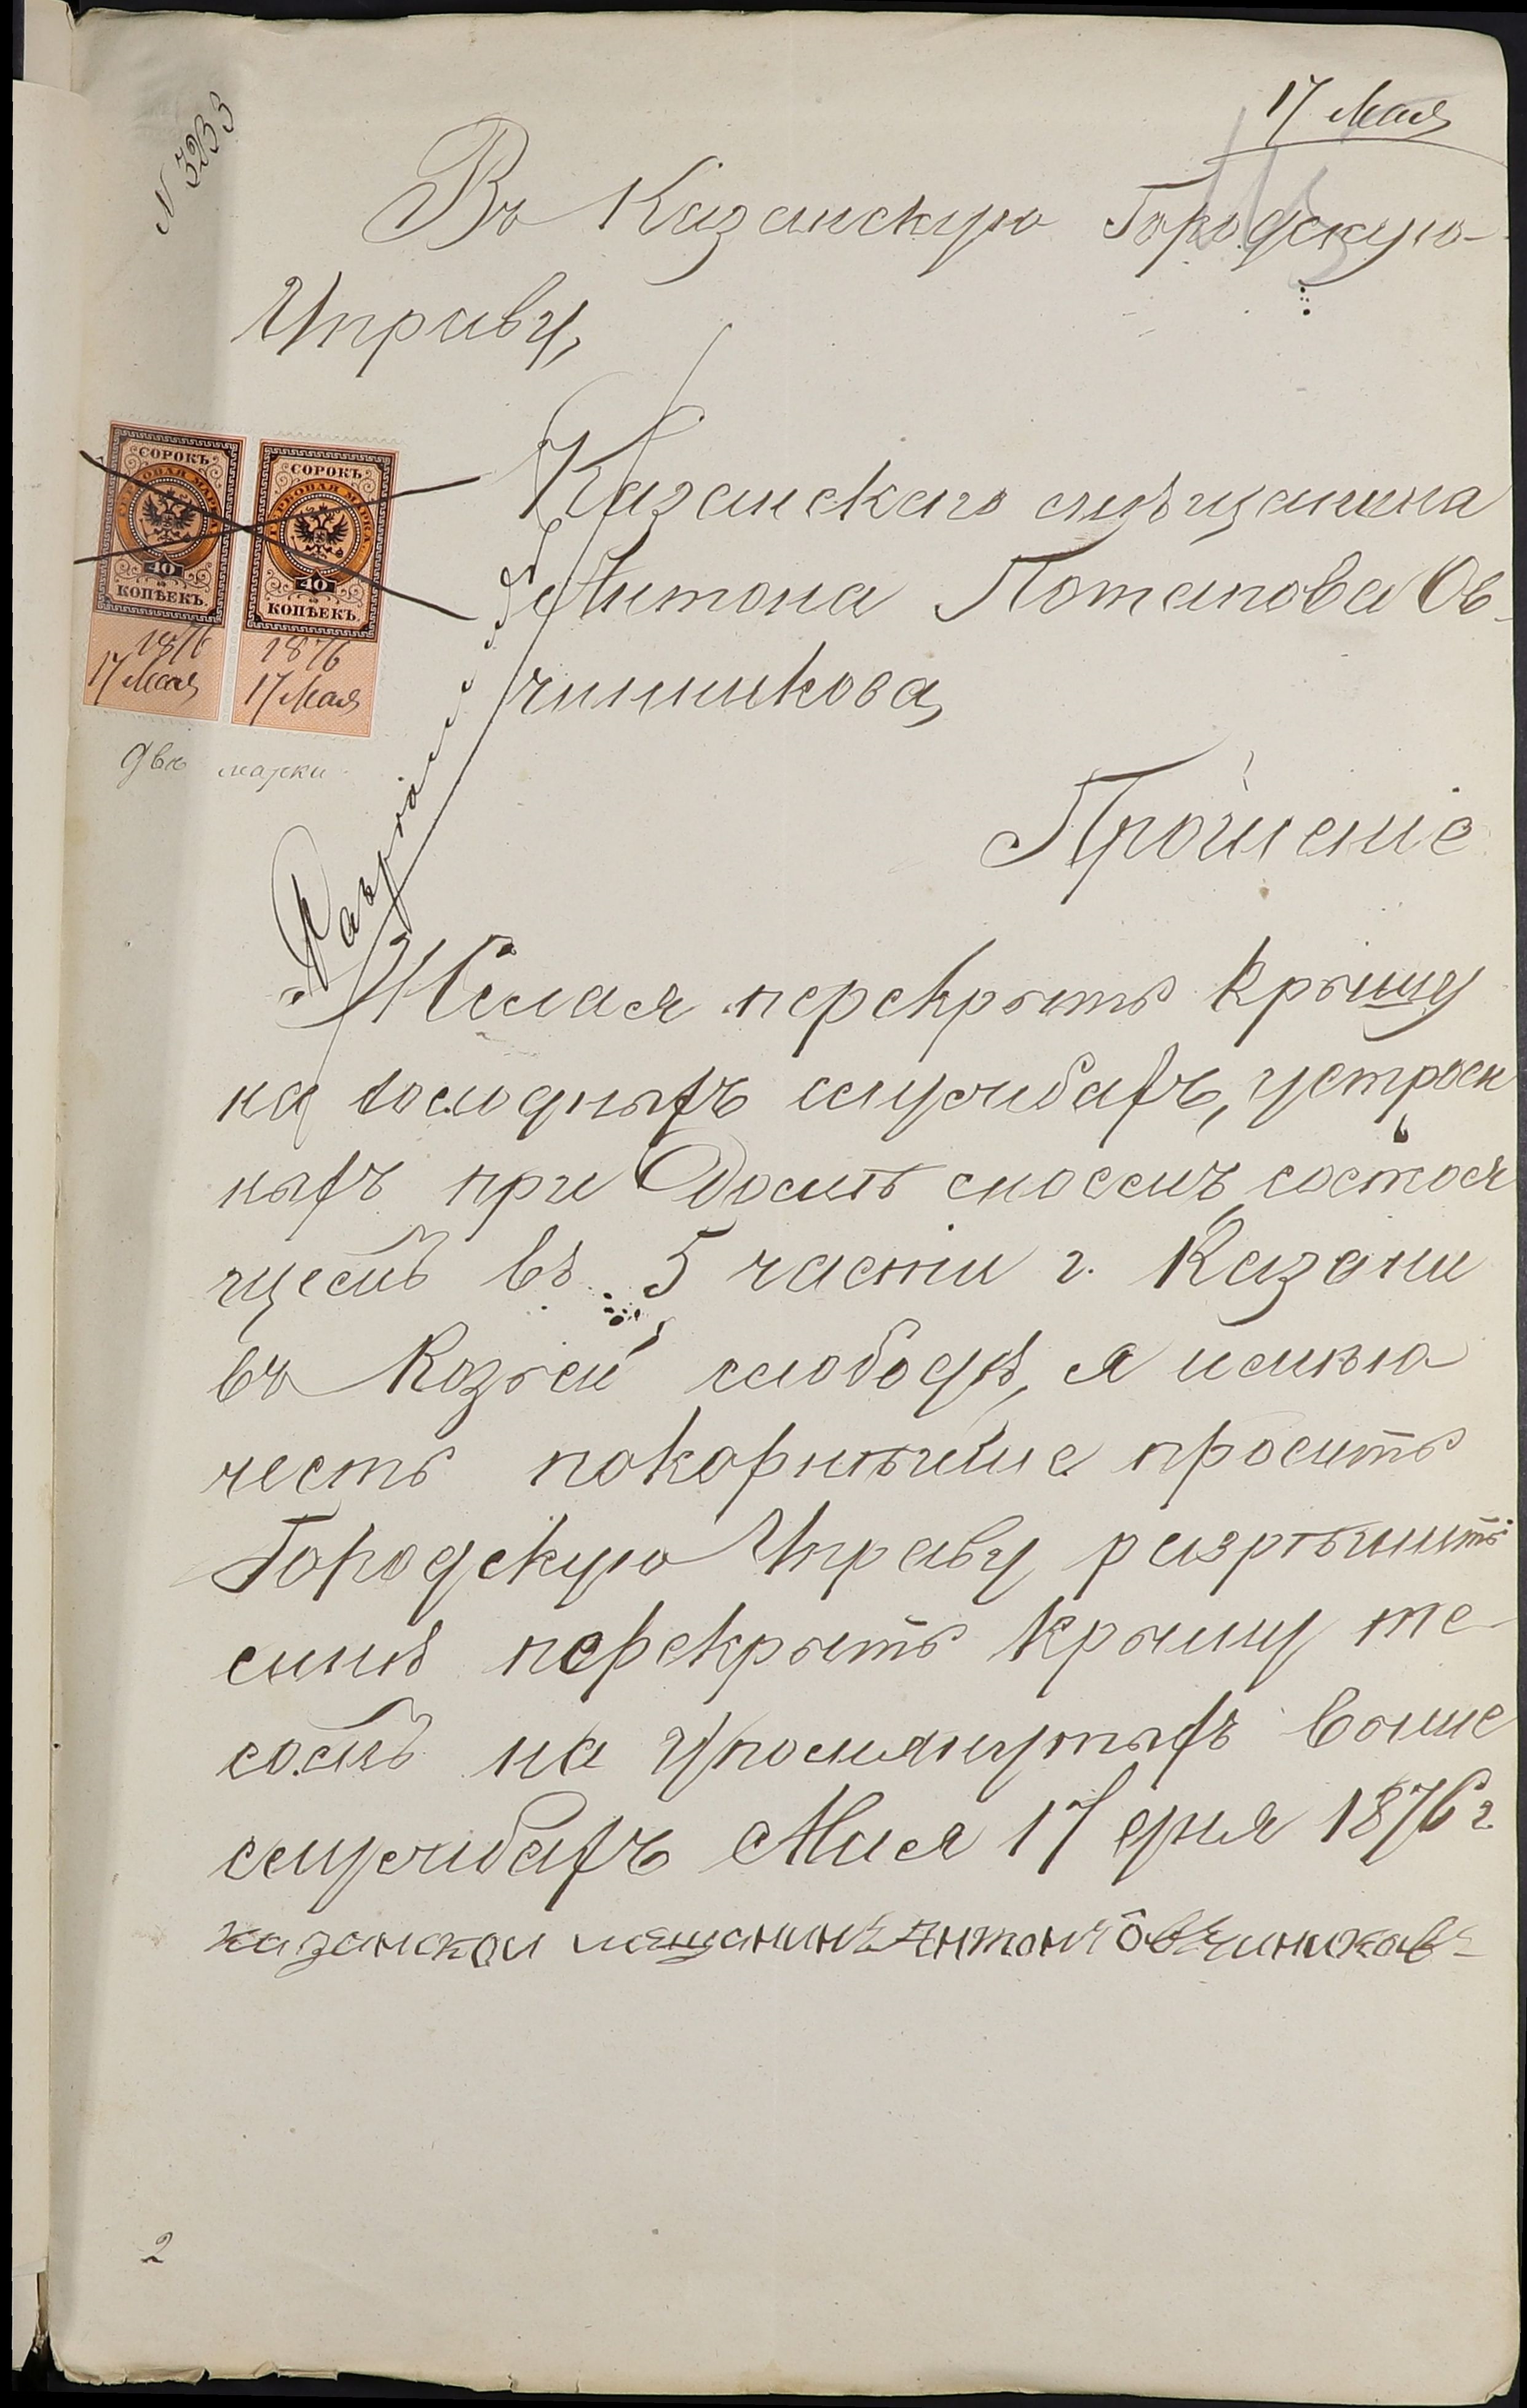 17 Мая
N 3233
Въ Казанскую Городскую
Управу,
Казанскаго мѣщанина
Антона Потапова Ов-
чинникова,
СОРОКЪ
ГЕРБОВАЯ МАРКА
40
КОПѢЕКЪ.
1876
17 Мая
СОРОКЪ
ГЕРБОВАЯ МАРКА
40
КОПѢЕКЪ.
1876
17 Мая
двѣ марки
Прошеніе
Желая перекрыть крышу
на холодныхъ службахъ, устроен
ныхъ при домѣ моемъ, состоя
щемъ въ 5 части г. Казани
въ Козьей слободѣ, я имѣю
честь покорнѣйше просить
Городскую Управу разрѣшить
мнѣ перекрыть крышу те-
сомъ на упомянутыхъ выше
службахъ Мая 17 дня 1876 г
казанской мещанинъ Антонъ Овчиниковъ
2